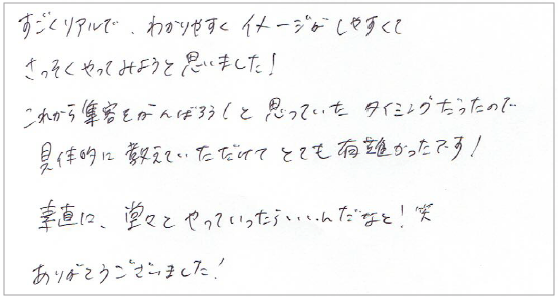 すごくリアルで、わかりやすくイメージがしやすくて
さっそくやってみようと思いました!
これから集客をがんばろう!と思っていたタイミングだったので
具体的に教えていただけてとても有難かったです!
率直に、堂々とやっていったらいいんだなと!笑
ありがとうございました!